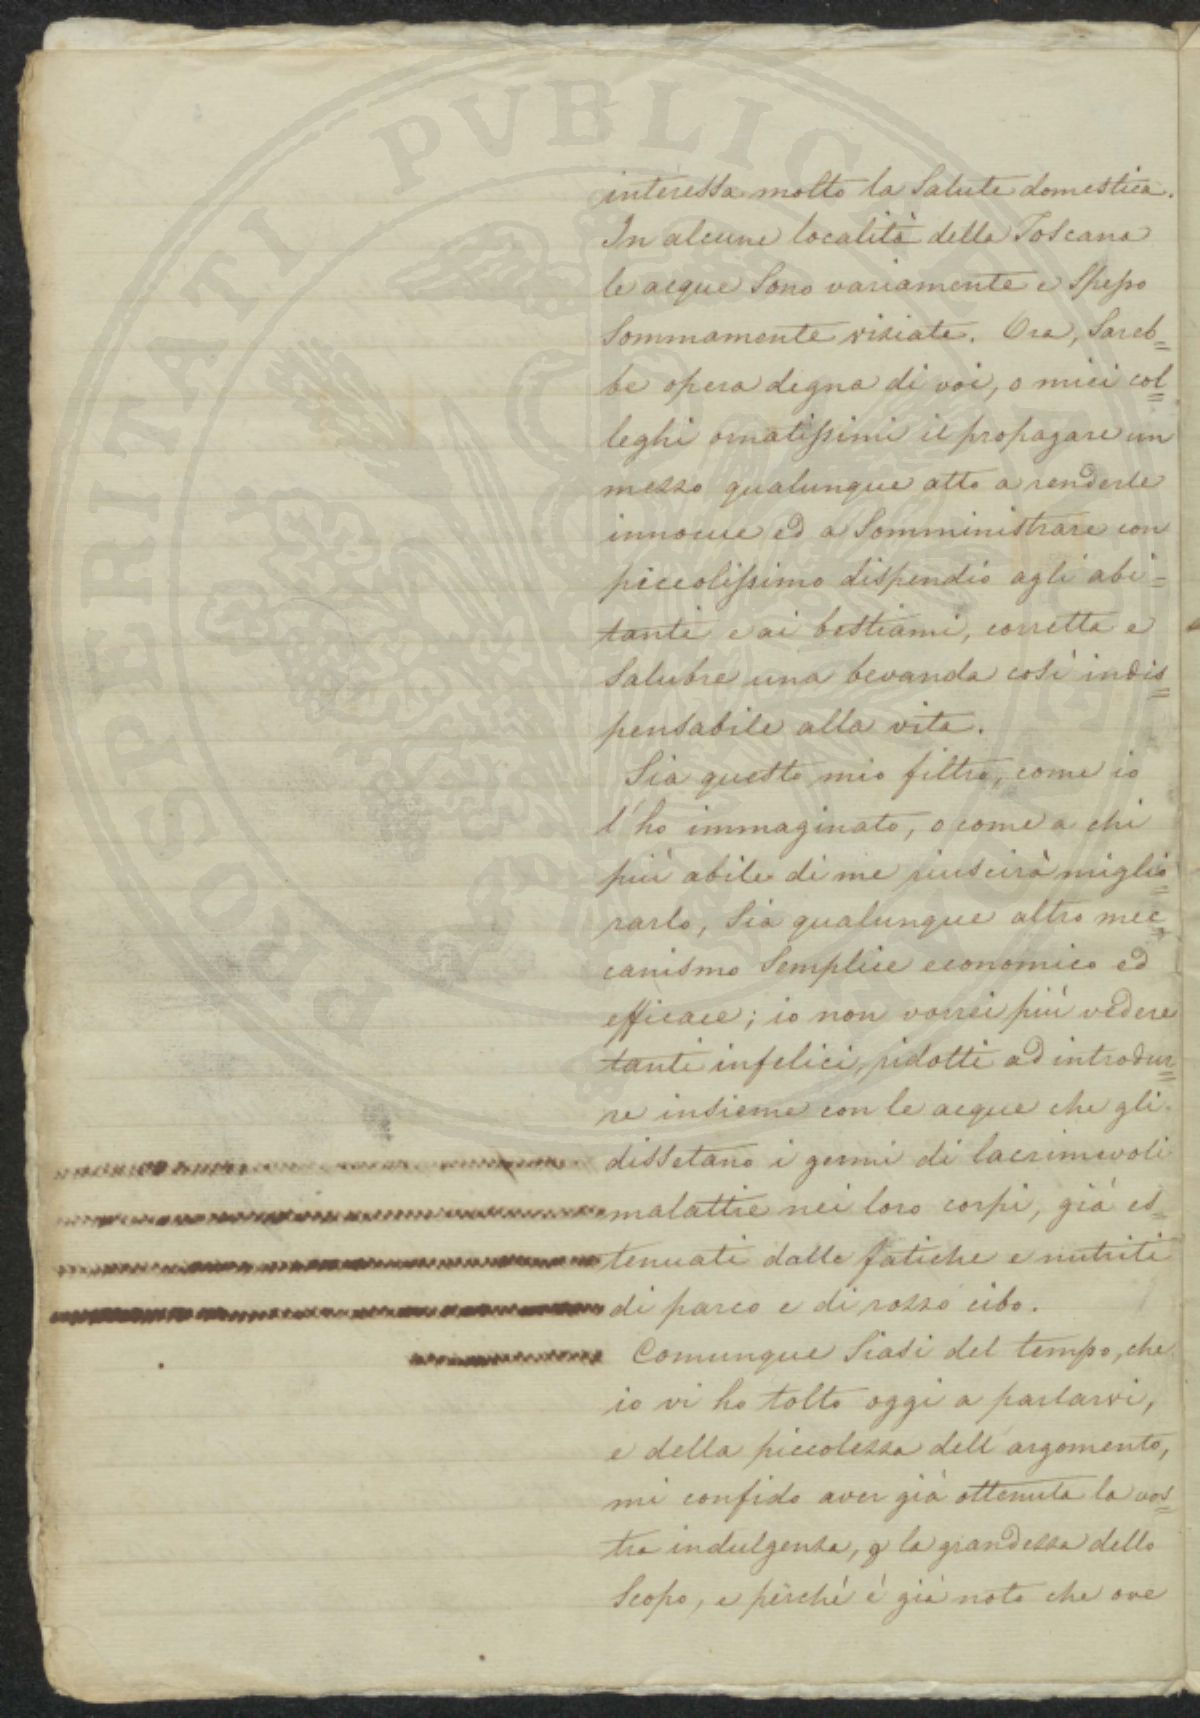 interessa molto la salute domestica.
In alcune località della Toscana
le acque sono variamente e spesso
sommamente viziate. Ora, sareb=
be opera degna di voi, o miei col=
leghi ornatissimi il propagare un
mezzo qualunque atto a renderle
innocue ed a somministrare con
piccolissimo dispendio agli abi=
tanti e ai bestiami, corretta e
salubre una bevanda così indis=
pensabile alla vita.
Sia questo mio filtro, come io
l'ho immaginato, o come a chi
più abile di me riuscirà miglio=
rarlo, sia qualunque altro mec=
canismo semplice economico ed
efficace; io non vorrei più vedere
tanti infelici, ridotti ad introdur=
re insieme con le acque che gli
dissetano i germi di lacrimevoli
malattie nei loro corpi, già es=
tenuati dalle fatiche e nutriti
di parco e di rozzo cibo.
Comunque siasi del tempo, che
io vi ho tolto oggi a parlarvi,
e della piccolezza dell'argomento,
mi confido aver già ottenuta la vos=
tra indulgenza, p la grandezza dello
scopo, e perchè è già noto che ove
PROSPERITATI PVBLICAE